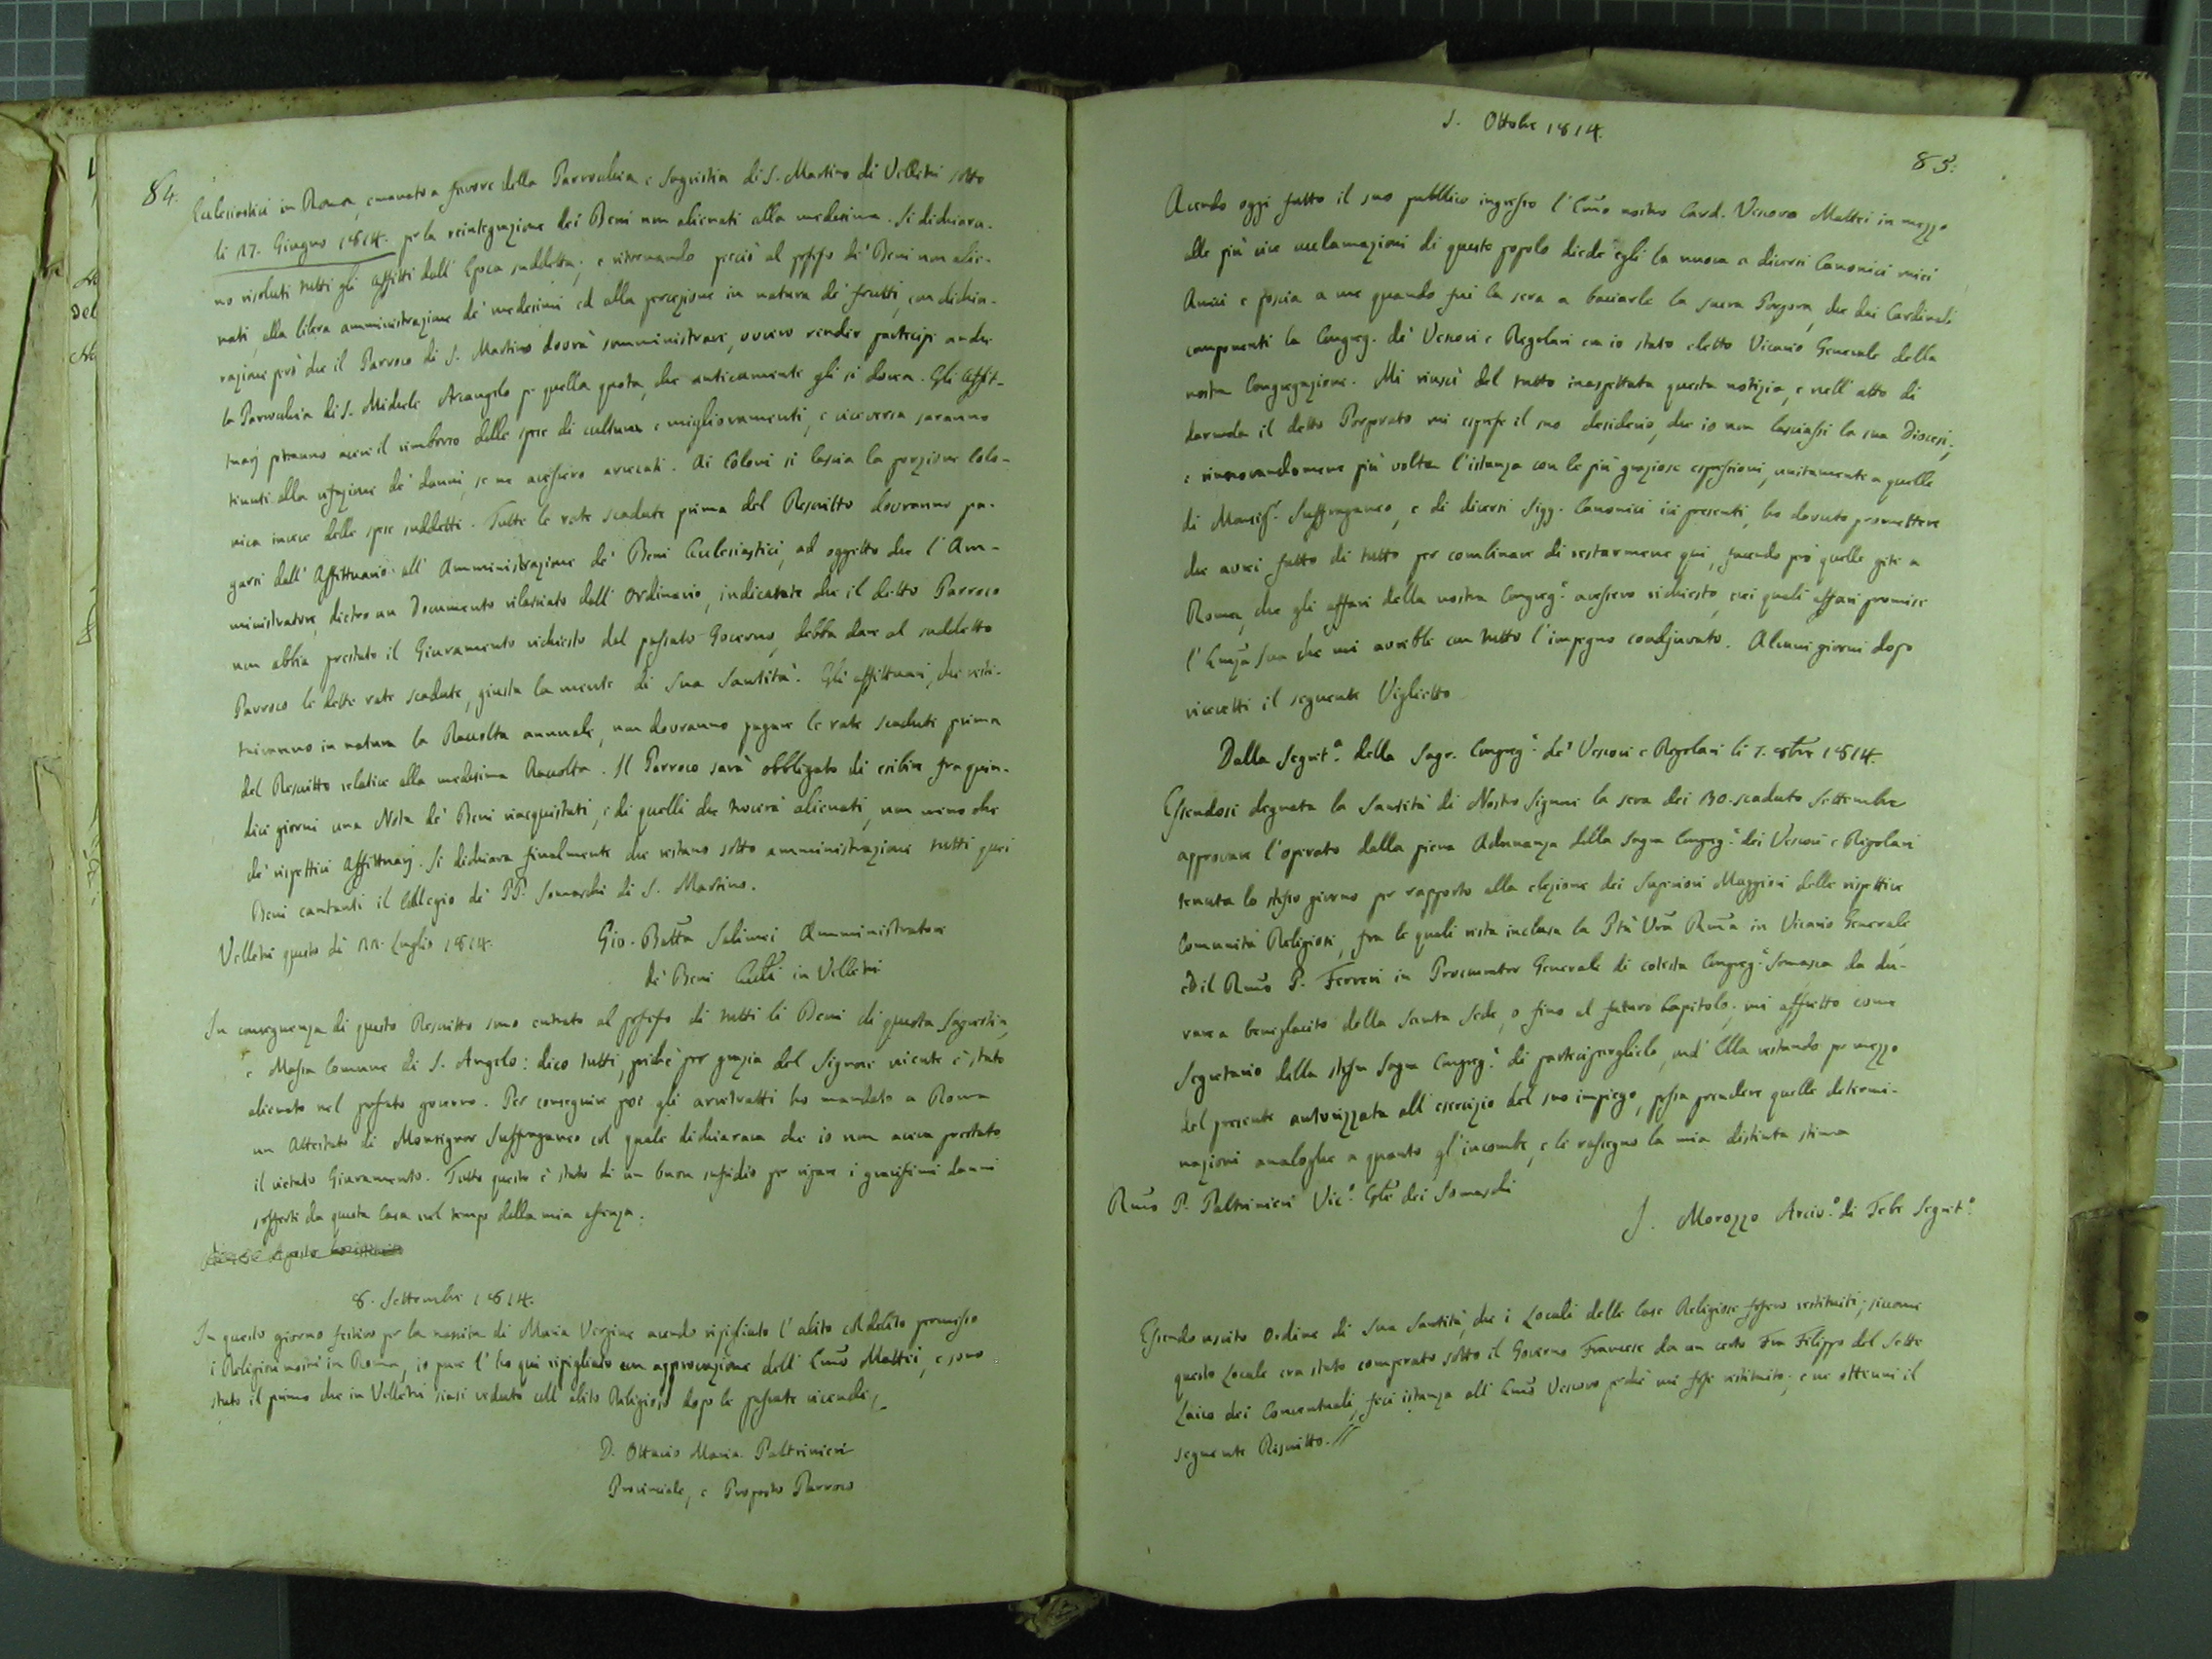 84.
Ecclesiastici in Roma, emanato a favore della Parrocchia e Sagristia di S. Martino di Velletri sotto
li 17. Giugno 1814. per la reintegrazione dei Beni non alienati alla medesima. Si dichiara-
no risoluti tutti gli affitti dall' Epoca suddetta; e ritornando perciò al possesso de' Beni non alie-
nati, alla libera amministrazione de' medesimi ed alla percezione in natura de' frutti, con dichia-
razione però che il Parroco di S. Martino dovrà somministrare, ovvero render partecipe anche
la Parrocchia di S. Michele Arcangelo per quella quota, che anticamente gli si dovea. Gli affit-
tuarj potranno avere il rimborso delle spese di cultura e miglioramenti, e viceversa saranno
tenuti alla rifazione de' danni, se ne avessero arrecati. Ai Coloni si lascia la porzione Colo-
nica invece delle spese suddette. Tutte le rate scadute prima del Rescritto dovranno pa-
garsi dall' Affittuario all' Amministrazione de' Beni Ecclesiastici, ad oggetto che l'Am-
ministratore, dietro un Documento rilasciato dall' Ordinario, indicante che il detto Parroco
non abbia prestato il Giuramento richiesto dal passato Governo, debba dare al suddetto
Parroco le dette rate scadute, giusta la mente di Sua Santità. Gli affittuari, che resti-
tuiranno in natura la Raccolta annuale, non dovranno pagare le rate scadute prima
del Rescritto relative alla medesima Raccolta. Il Parroco sarà obbligato di esibire fra quin-
dici giorni una Nota de' Beni riacquistati, e di quelli che troverà alienati, non meno che
de' rispettivi Affittuarj. Si dichiara finalmente che restano sotto amministrazione tutti quei
Beni cantanti il Collegio de' PP. Somaschi di S. Martino.
Velletri questo dì 12. Luglio 1814. Gio. Batta Salimei Amministratore
de' Beni Eccl͞i in Velletri
In conseguenza di questo Rescritto sono entrato al possesso di tutti li Beni di questa Sagrestia,
e Massa Comune di S. Angelo: dico tutti, perchè per grazia del Signore niente è stato
alienato nel passato governo. Per conseguire poi gli arretratti ho mandato a Roma
un Attestato di Monsignor Suffraganeo col quale dichiarava che io non aveva prestato
il vietato Giuramento. Tutto questo è stato di un buon sussidio per riparare i gravissimi danni
sofferti da questa Casa nel tempo della mia assenza.
8. Settembre 1814.
In questo giorno festivo per la nascita di Maria Vergine avendo ripigliato l'abito col debito permesso
i Religiosi nostri in Roma, io pure l'ho qui ripigliato con approvazione dell' Em͞o Mattei, e sono
stato il primo che in Velletri siasi veduto coll' abito Religioso dopo le passate vicende,
D. Ottavio Maria Paltrinieri
Provinciale, e Preposto Parroco
5. Ottobre 1814.
85.
Avendo oggi fatto il suo pubblico ingresso l'Em͞o nostro Card. Vescovo Mattei in mezzo
alle più vive acclamazioni di questo popolo diede egli la nuova a diversi Canonici miei
Amici e poscia a me quando fui la sera a baciarle la sacra Porpora, che dai Cardinali
componenti la Congreg. de' Vescovi e Regolari era io stato eletto Vicario Generale della
nostra Congregazione. Mi riuscì del tutto inaspettata questa notizia, e nell' atto di
darmela il detto Porporato mi espresse il suo desiderio, che io non lasciassi la sua Diocesi;
e rinnovandomene più volte l'istanza con le più graziose espressioni, unitamente a quelle
di Monsigr. Suffraganeo, e di diversi Sigg. Canonici ivi presenti, ho dovuto promettere
che avrei fatto di tutto per combinare di restarmene qui, facendo però quelle gite a
Roma, che gli affari della nostra Congreg.e avessero richiesto, nei quali affari promise
l'Em͞za Sua che mi avrebbe con tutto l'impegno coadjuvato. Alcuni giorni dopo
ricevetti il seguente Viglietto
Dalla Segret.a della Sagr. Congreg.e de' Vescovi e Regolari li 7. 8bre 1814.
Essendosi degnata la Santità di Nostro Signore la sera dei 30. scaduto Settembre
approvare l'operato dalla piena Adunanza della Sagra Congreg.e dei Vescovi e Regolari
tenuta lo stesso giorno per rapporto alla elezione dei Superiori Maggiori delle rispettive
Comunità Religiose, fra le quali resta inclusa la Ptà V͞ra R͞ma in Vicario Generale,
ed il R͞mo P. Ferreri in Procurator Generale di cotesta Congreg.e Somasca da du-
rare a beneplacito della Santa Sede, o fino al futuro Capitolo; mi affretto come
Segretario della stessa Sagra Congreg.e di parteciparglielo, ond' Ella restando per mezzo
del presente autorizzata all' esercizio del suo impiego, possa prendere quelle determi-
nazioni analoghe a quanto gl' incombe, e le rassegno la mia distinta stima
R͞mo P. Paltrinieri Vic.o Gle dei Somaschi
J. Morozzo Arciv.o di Tebe Segret.o
Essendo uscito Ordine di Sua Santità, che i Locali delle Case Religiose fossero restituiti; siccome
questo Locale era stato comperato sotto il Governo Francese da un certo Fra Filippo del Sette
Laico dei Conventuali, feci istanza all' Em͞o Vescovo perchè mi fosse restituito; e ne ottenni il
seguente Rescritto.//